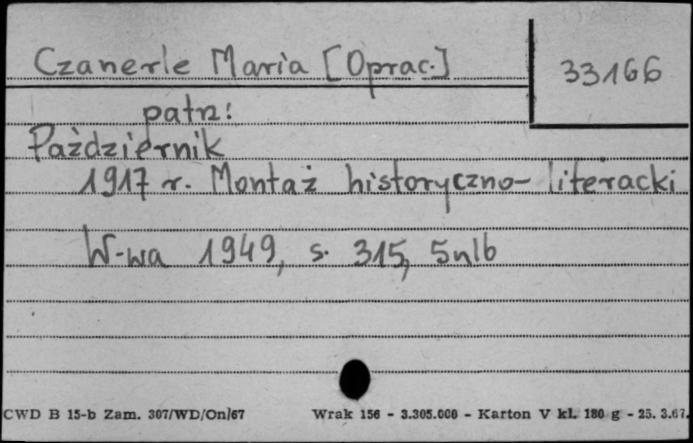 Czanerle Maria [Oprac.]
33166
patrz:
Październik
1917 r. Montaż historyczno-literacki
W-wa 1949, s. 315, 5nlb
CWD B 15-b Zam. 307/WD/On/67 Wrak 156 - 3.305.000 - Karton V kl. 180 g - 25. 3.67.